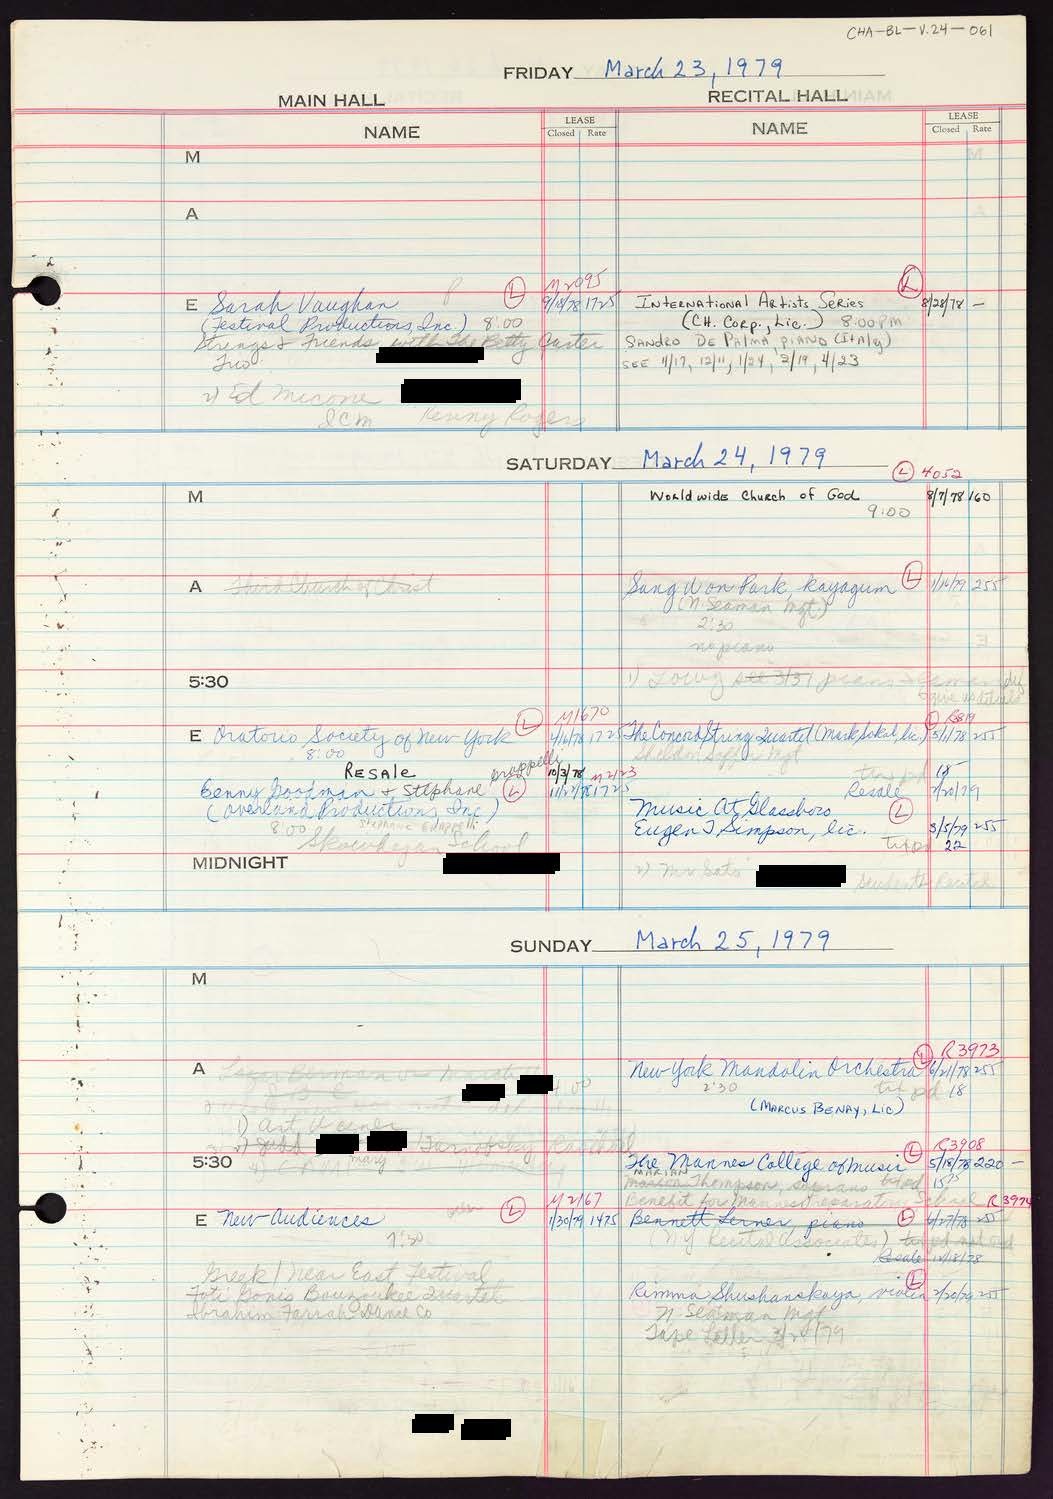 CHA-BL-V.24-061
FRIDAY March 23, 1979
MAIN HALL RECITAL HALL
NAME LEASE Closed Rate NAME LEASE Closed Rate
M
A
E Sarah Vaughan P L M2095 9/18/78 1725
(Festival Productions, Inc.) 8:00
Strings & Friends with The Betty Carter
Trio
2) Ed Micone
ICM Kenny Rogers
International Artists Series L 8/28/78 —
(CH. Corp., Lic.) 8:00 PM
SANDRO DE PALMA, PIANO (ITALY)
SEE 11/17, 12/11, 1/24, 2/19, 4/23
SATURDAY March 24, 1979
L 4052
M Worldwide Church of God 8/7/78 160
9:00
A Third Church of Christ
Sang Won Park, kayagum L 1/16/79 255
(N. Seaman Mgt)
2:30
no piano
5:30
1) Lowy see 3/31 piano
E Oratorio Society of New York L M1670 1725
8:00
RESALE 10/3/78 M2123
Benny Goodman & Stephane Grappelli L 11/22/78 1725
(Overland Productions, Inc.)
8:00 Stephane Grappelli
Skowhegan School
The Concord String Quartet (Mark Sokol, Lic.) L R819 5/1/78 255
Sheldon Soffer Mgt
tax pd 18
Resale 2/20/79
Music At Glassboro L
Eugen T. Simpson, Lic. 3/5/79 255
tax pd 22
MIDNIGHT
2) Mr Sato Students Recital
SUNDAY March 25, 1979
M
A Lazar Berman
1) Art Wiener
New York Mandolin Orchestra L R3973 6/21/78 255
2:30 tax pd 18
(MARCUS BENAY, LIC)
5:30
The Mannes College of Music L R3908 5/18/78 220 —
MARIAN
Marion Thompson, soprano tax pd 15
Benefit for Mannes Preparatory School R3974
E New Audiences L M2167 1/30/79 1475
7:30
Greek / Near East Festival
Foti Gonis Bouzoukee Quartet
Ibrahim Farrah Dance Co
Bennett Lerner, piano L 6/27/78 255
(NY Recital Associates) tax pd
Resale 12/18/78
Rimma Shushanskaya, violin L 2/20/79 255
N. Seaman Mgt